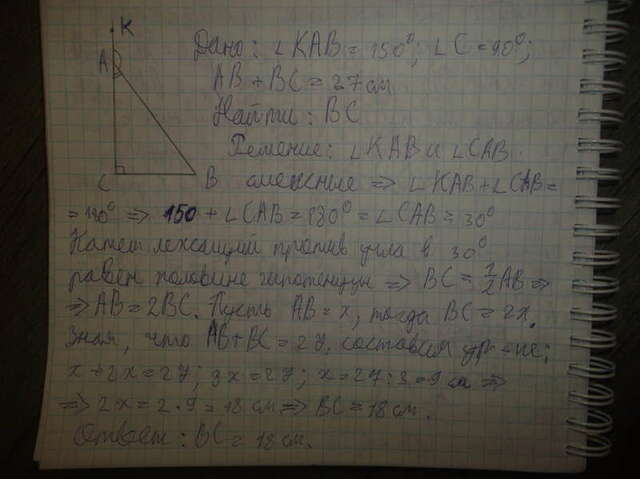 К
А
С
В
Дано: ∠KAB = 150°; ∠C = 90°;
AB + BC = 27 см
Найти: BC
Решение: ∠KAB и ∠CAB
смежные => ∠KAB + ∠CAB =
= 180° => 150 + ∠CAB = 180° = ∠CAB = 30°
Катет лежащий против угла в 30°
равен половине гипотенузы => BC = 1/2 AB =>
=> AB = 2BC. Пусть AB = x, тогда BC = 2x.
Зная, что AB + BC = 27, составим ур-ие:
x + 2x = 27; 3x = 27; x = 27 : 3 = 9 см =>
=> 2x = 2 · 9 = 18 см => BC = 18 см.
Ответ: BC = 18 см.